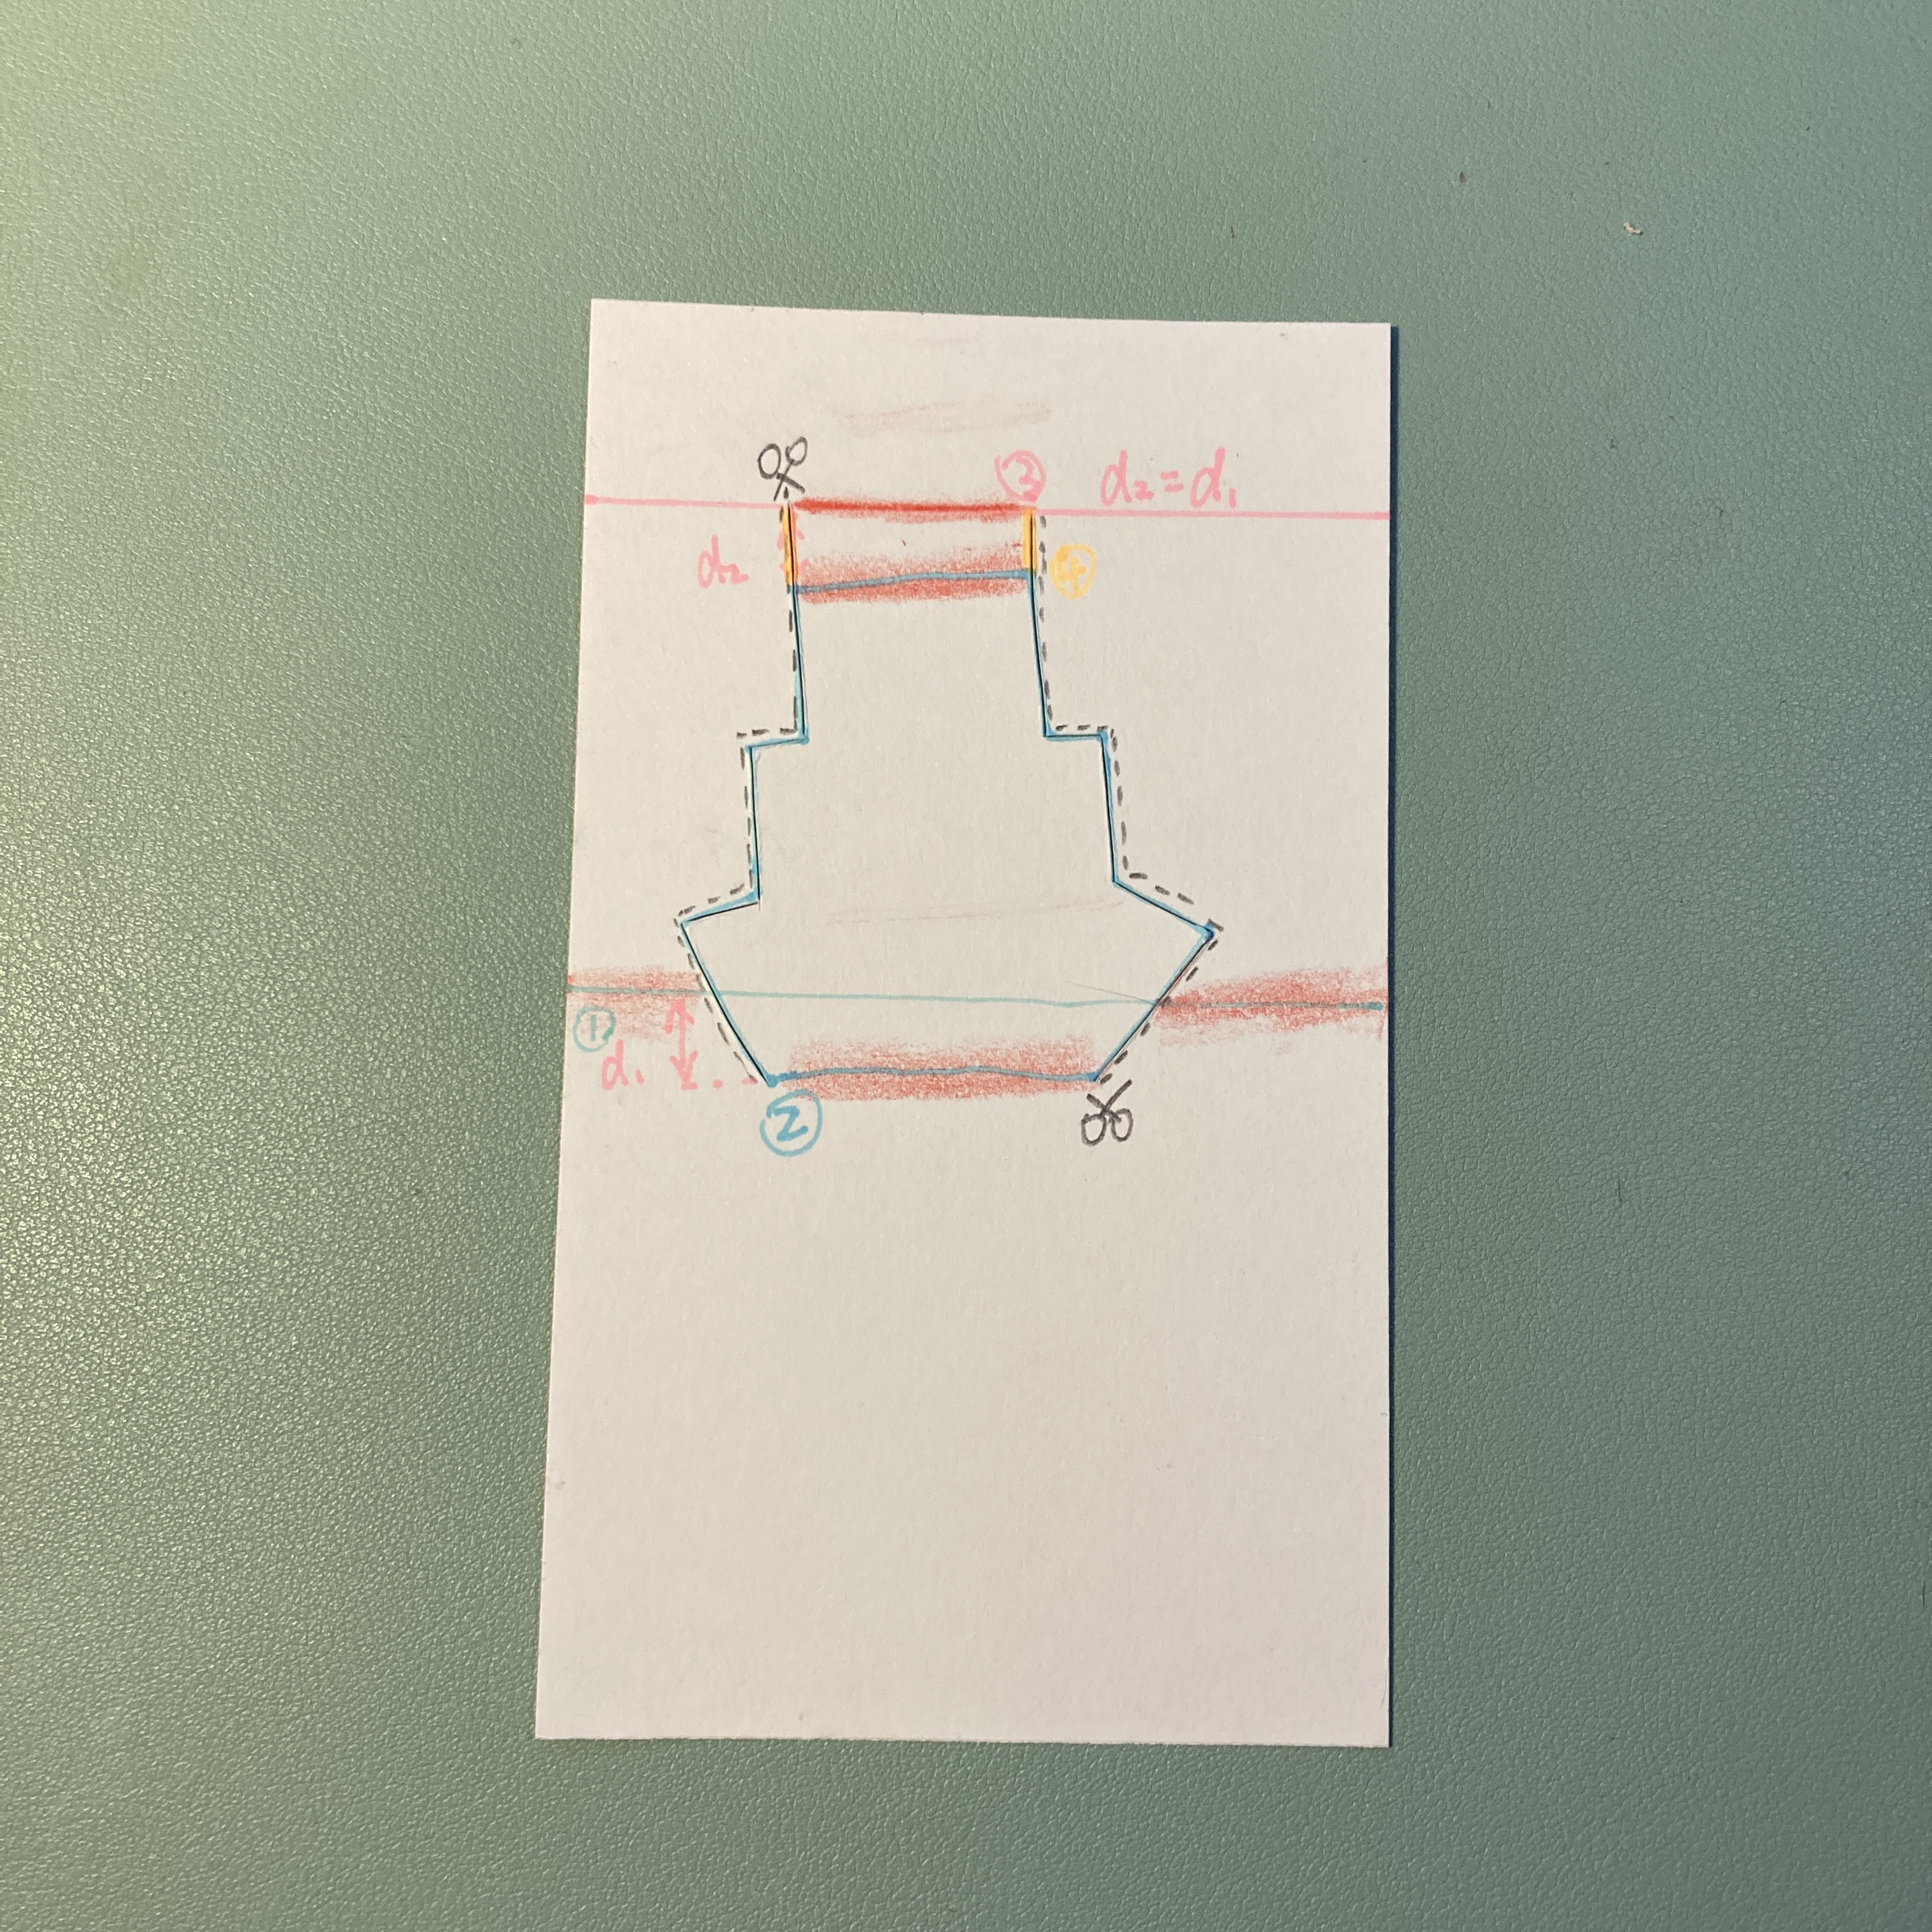 ③ d₂=d₁
d₂ ④
①
d₁
②